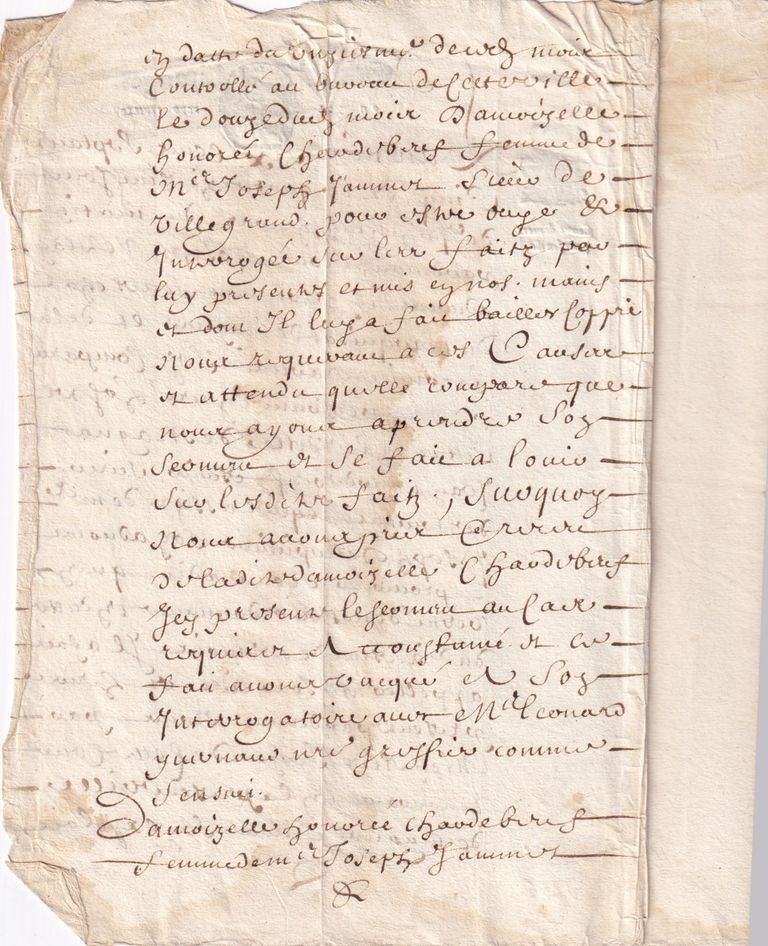 en datte du unziesme de ce mois
Controllé au bureau de cette ville
le douze dud mois Damoizelle
honorée Chardebœf femme de
Mr Joseph Jammet sieur de
villegrand pour estre ouye et
Interrogée sur les faitz par
luy presentes et mis en nos mains
et dont Il luy a fait bailler Coppie
Nous requerant a ces Causes
et attendu quelle compare que
nous ayons a prendre son
sermen et se faie a louie
sur lesdits faitz, surquoy
Nous avons pris et receu
de ladite damoizelle Chardebœf
Icy presente le sermen au Cas
requis et accoustumé et ce
fait avons vacqué a son
Interrogatoire avec Me leonard
nre greffier comme
sensuit.
Damoizelle honorée Chardebœf
femme de mr Joseph Jammet
&